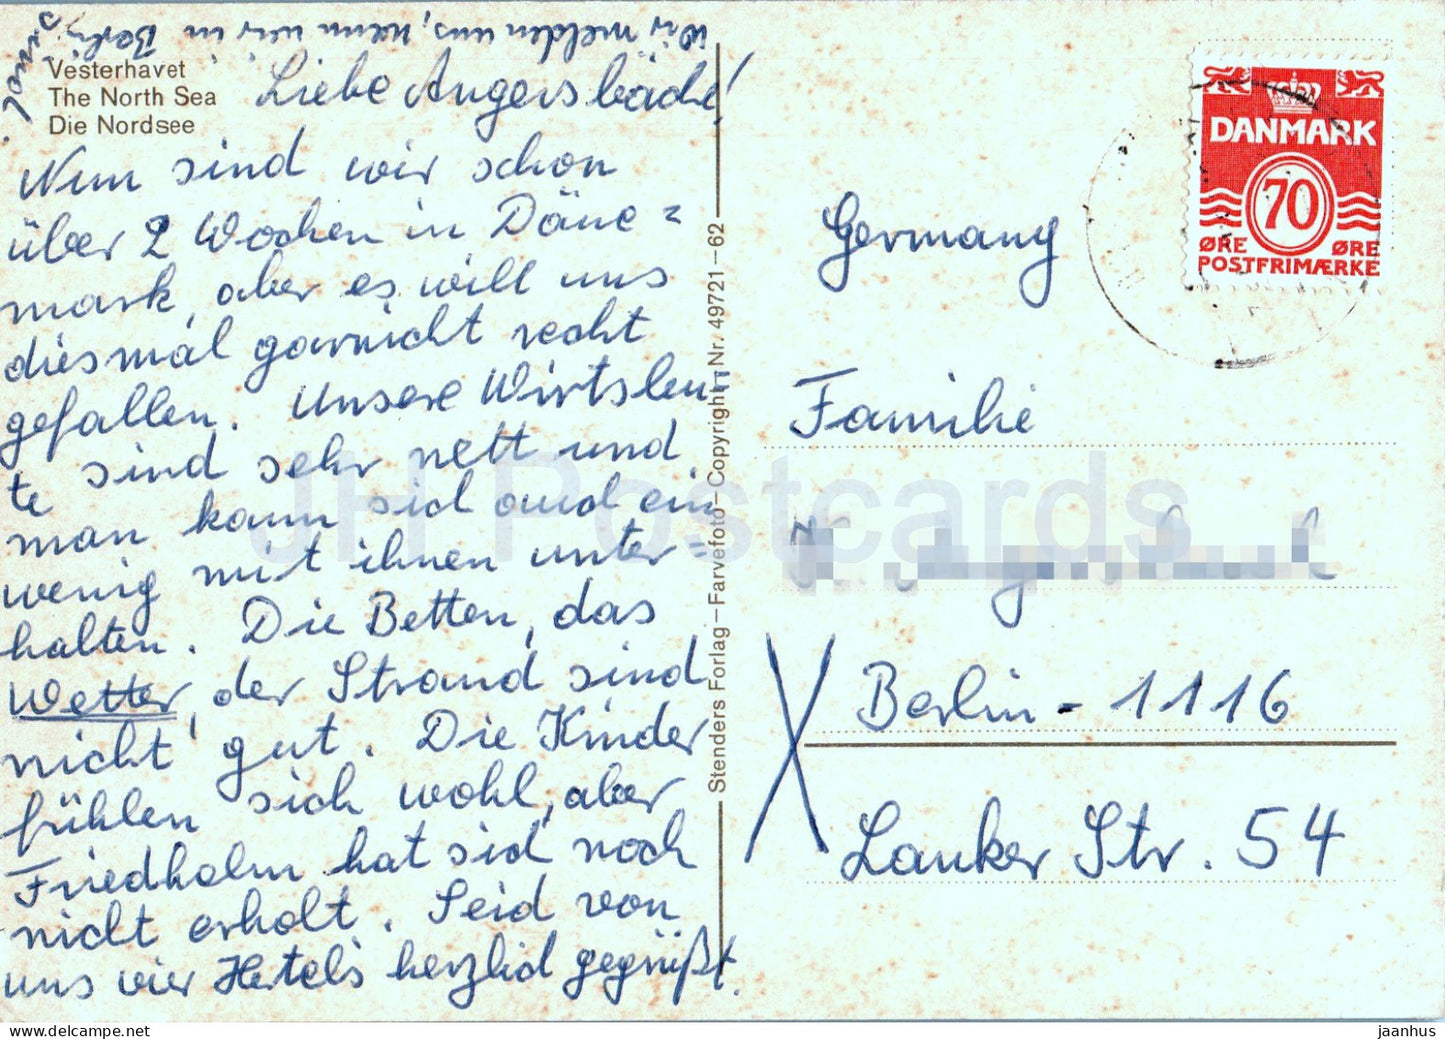 Wir melden uns, wenn wir in Berlin
sind.
Vesterhavet
The North Sea
Die Nordsee
Liebe Angersbäche!
Nun sind wir schon
über 2 Wochen in Däne=
mark, aber es will uns
diesmal garnicht recht
gefallen. Unsere Wirtsleu-
te sind sehr nett und
man kann sich auch ein
wenig mit ihnen unter=
halten. Die Betten, das
Wetter, der Strand sind
nicht gut. Die Kinder
fühlen sich wohl, aber
Friedhelm hat sich noch
nicht erholt. Seid von
uns vier Hertel's herzlich gegrüßt.
Stenders Forlag – Farvefoto – Copyright Nr. 49721 – 62
DANMARK
70
ØRE ØRE
POSTFRIMÆRKE
Germany
Familie
Berlin - 1116
Lanker Str. 54
JH Postcards
delcampe.net
jaanhus